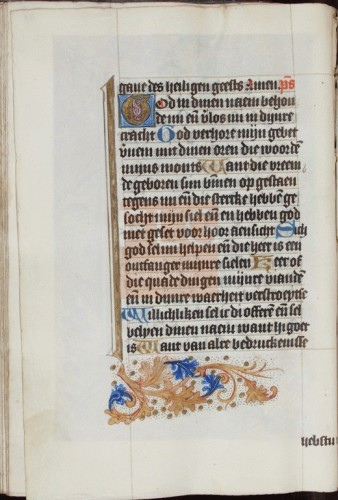 gaue des heiligen geests Amen. ps
God in dinen naem behou
de mi en̄ v̓los mi in dijnre
cracht God verhore mijn gebet
v̓nem mit dinen oren die woorde
mijns monts Want die vreem
de geboren sijn v̓inen op gestaen
tegens mi en̄ die stercke hebbē ge
socht mijn siel en̄ en hebben god
niet geset voor hoor aensicht Sich
god sel mi helpen en̄ die heer is een
ontfanger mijnre sielen Keer of
die quade dingen mijnre viandē
en̄ in dijnre waerheit verstroeytse
Willichliken sel ic di offerē en̄ sel
belyen dinen naem want hi goet
is Want van alre bedruckenisse
hebstu